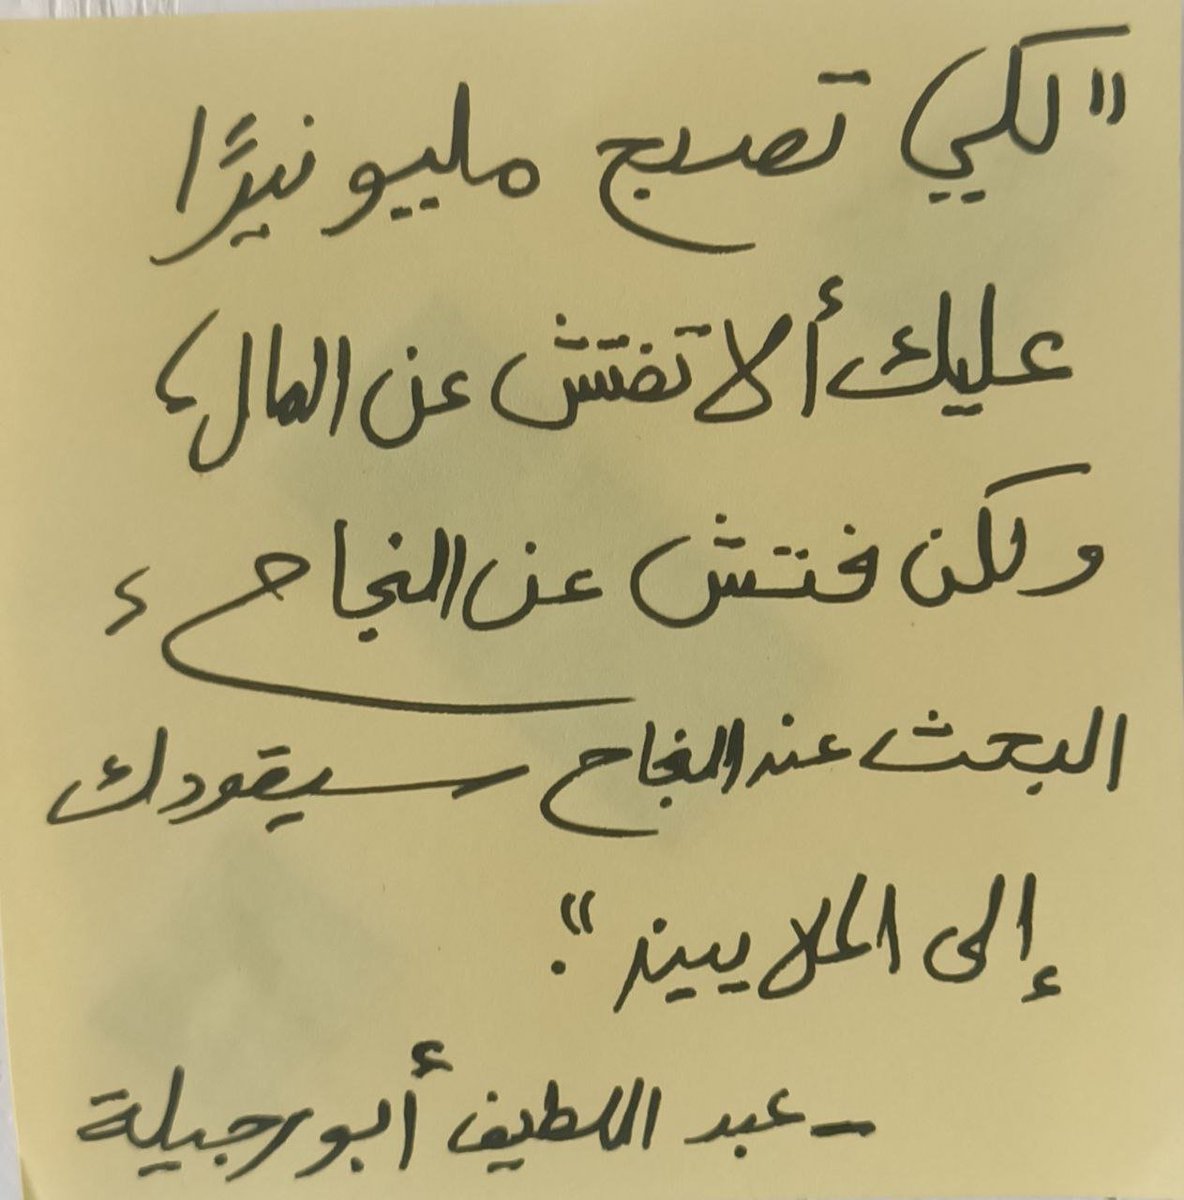 "لكي تصبح مليونيرًا
عليك ألا تفتش عن المال،
ولكن فتش عن النجاح،
البحث عن النجاح سيقودك
إلى الملايين".
- عبد اللطيف أبو رجيلة